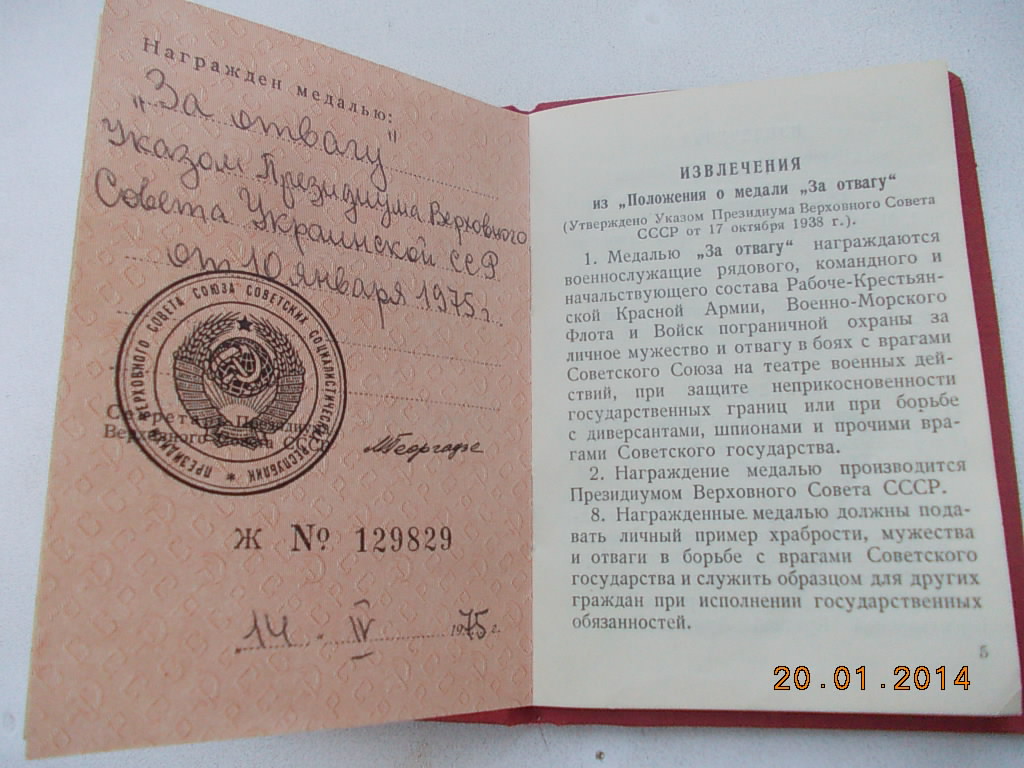 Награжден медалью:
„За отвагу"
Указом Президиума Верховного
Совета Украинской ССР
от 10 января 1975 г.
ПРЕЗИДИУМ ВЕРХОВНОГО СОВЕТА СОЮЗА СОВЕТСКИХ СОЦИАЛИСТИЧЕСКИХ РЕСПУБЛИК *
Секретарь Президиума
Верховного Совета СССР
МГеоргадзе
Ж № 129829
14. IV 1975 г.
ИЗВЛЕЧЕНИЯ
из „Положения о медали „За отвагу“
(Утверждено Указом Президиума Верховного Совета
СССР от 17 октября 1938 г.).
1. Медалью „За отвагу“ награждаются
военнослужащие рядового, командного и
начальствующего состава Рабоче-Крестьян-
ской Красной Армии, Военно-Морского
Флота и Войск пограничной охраны за
личное мужество и отвагу в боях с врагами
Советского Союза на театре военных дей-
ствий, при защите неприкосновенности
государственных границ или при борьбе
с диверсантами, шпионами и прочими вра-
гами Советского государства.
2. Награждение медалью производится
Президиумом Верховного Совета СССР.
8. Награжденные медалью должны пода-
вать личный пример храбрости, мужества
и отваги в борьбе с врагами Советского
государства и служить образцом для других
граждан при исполнении государственных
обязанностей.
5
20.01.2014